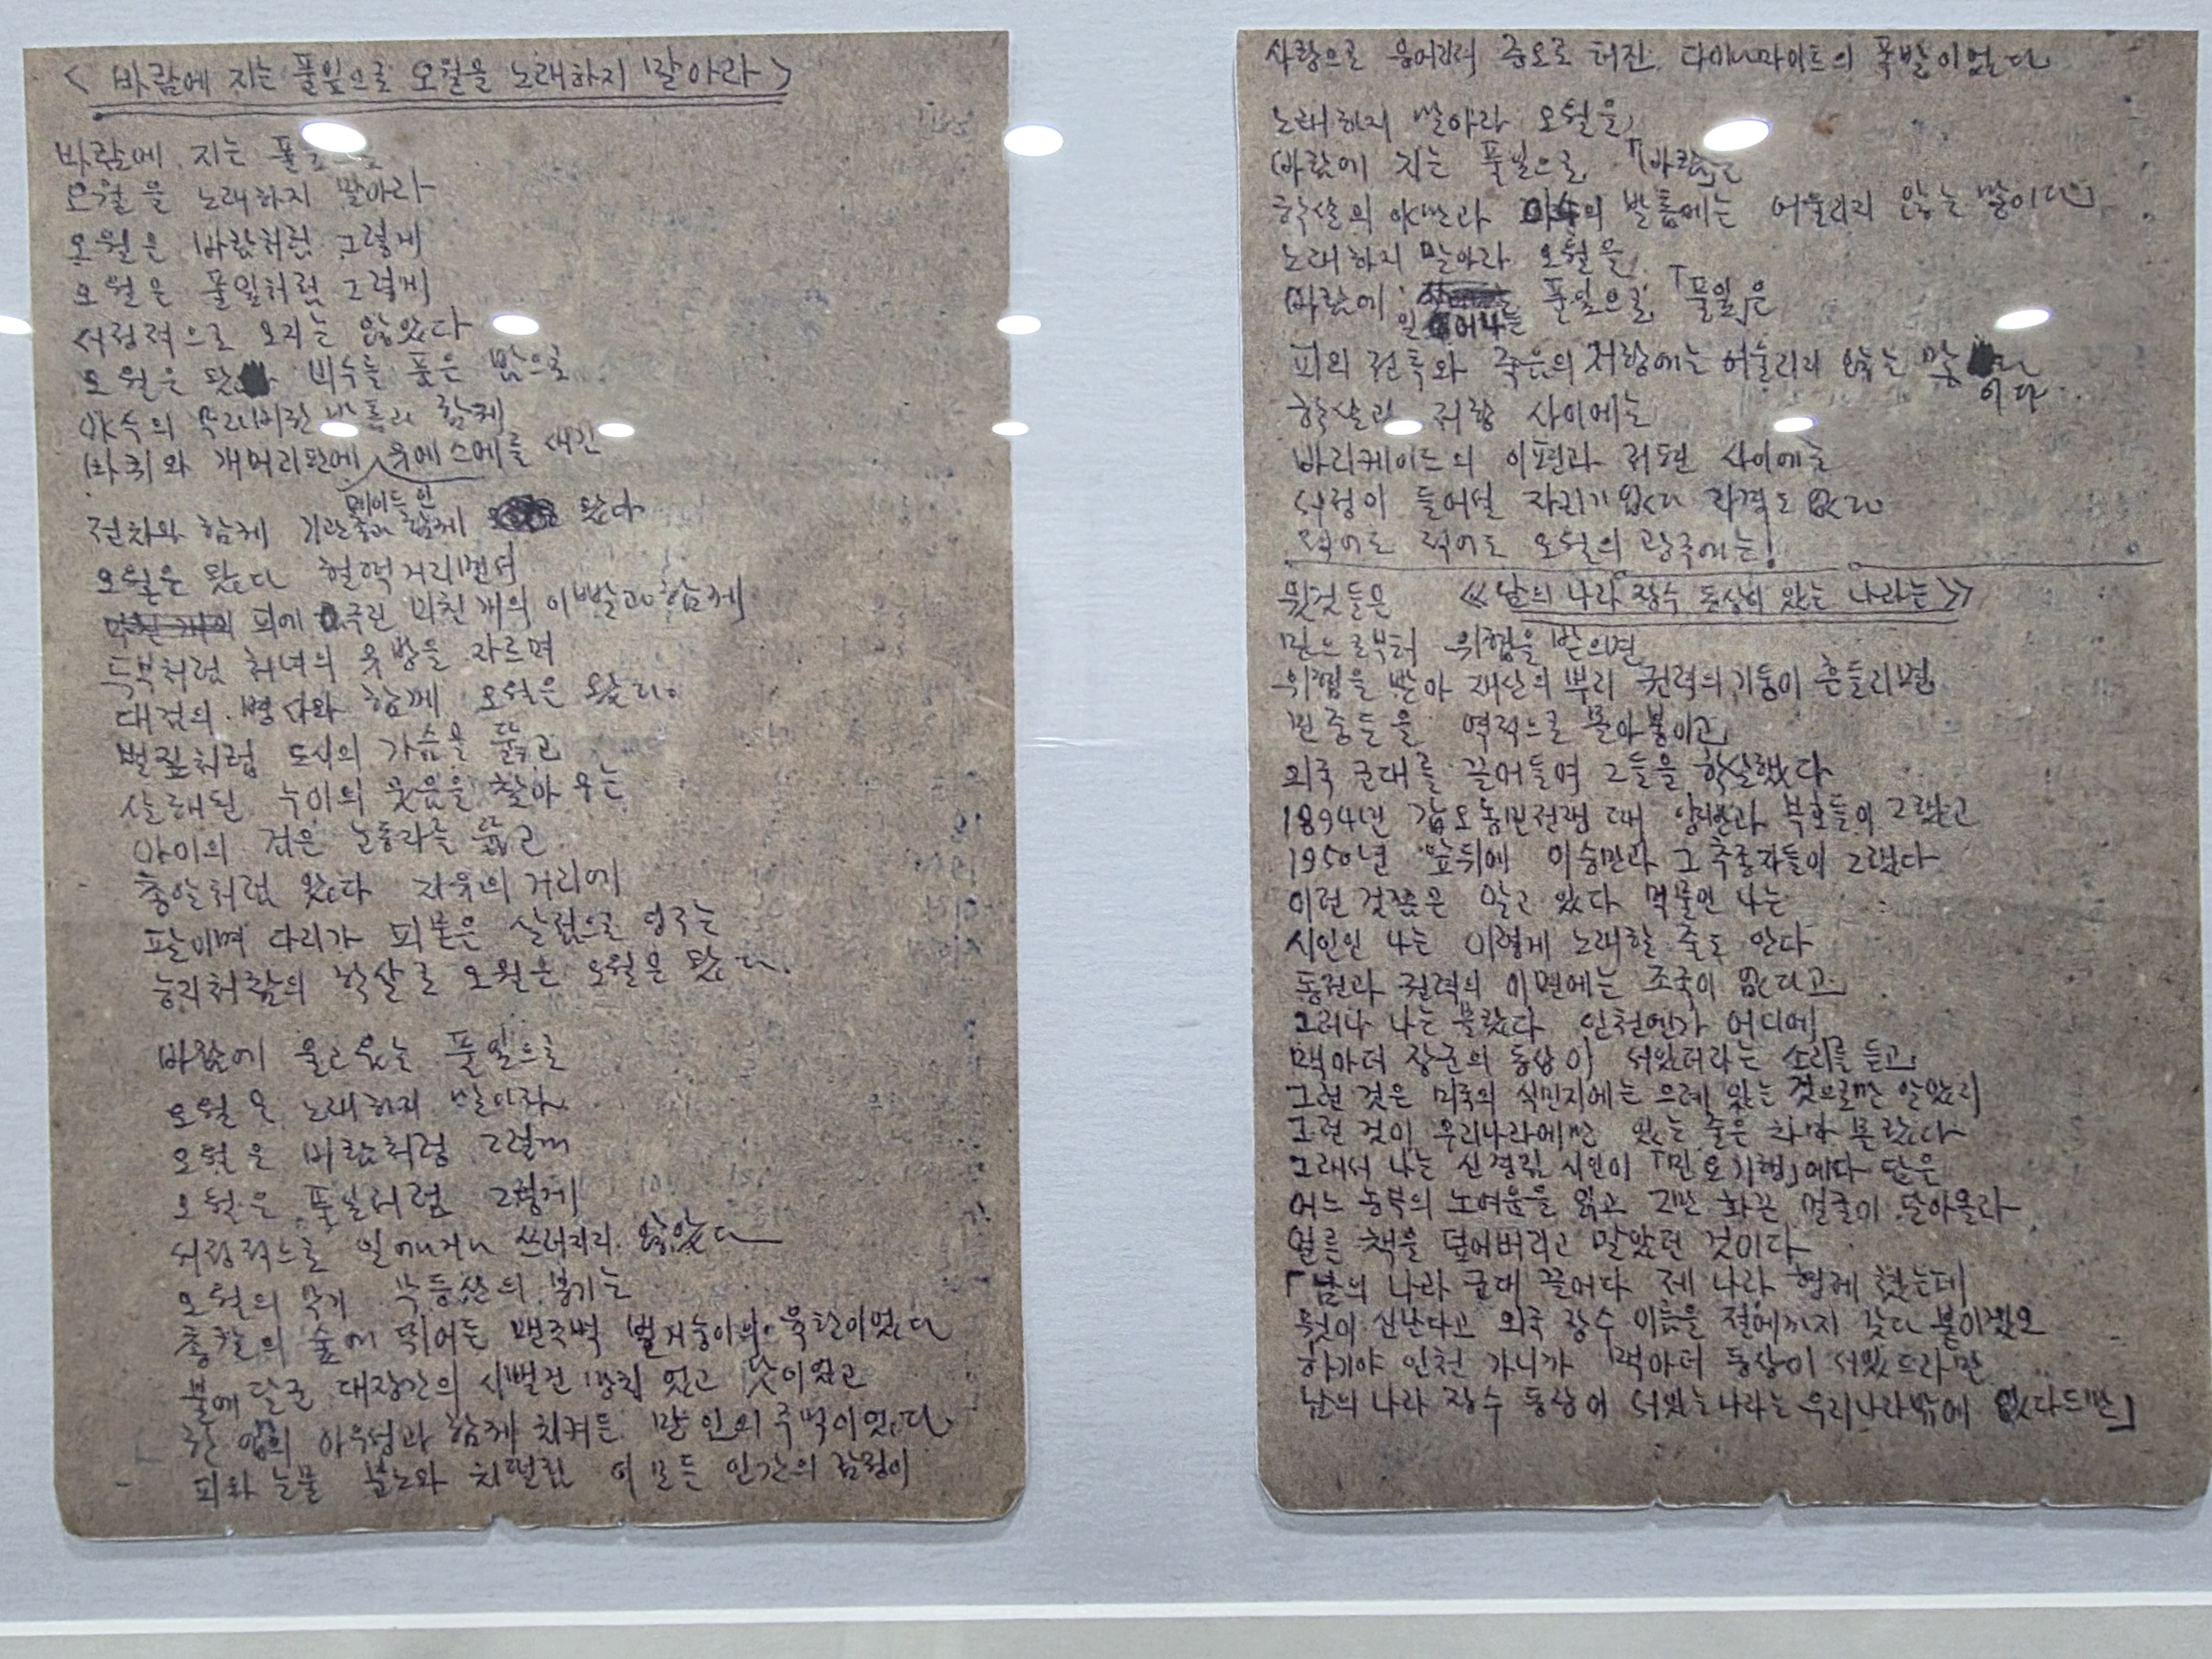 < 바람에 지는 풀잎으로 오월을 노래하지 말아라 >
바람에 지는 풀잎으로
오월을 노래하지 말아라
오월은 바람처럼 그렇게
오월은 풀잎처럼 그렇게
서정적으로 오지는 않았다
오월은 왔다 비수를 품은 밤으로
야수의 무리버린 발톱과 함께
바퀴와 개머리판에 유에스에를 새긴
메이드 인
전차와 함께 기관총과 함께 왔다
오월은 왔다 헐떡거리면서
피에 굶주린 미친 개의 이빨과 함께
두부처럼 처녀의 유방을 자르며
대검의 병사와 함께 오월은 왔다
벌집처럼 도시의 가슴을 뚫고
살해된 누이의 웃음을 찾아 우는
아이의 검은 눈동자를 뚫고
총알처럼 왔다 자유의 거리에
팔이며 다리가 피묻은 살점으로 엉기는
능지처참의 학살로 오월은 오월은 왔다.
바람에 울고 웃는 풀잎으로
오월을 노래하지 말아라
오월은 바람처럼 그렇게
오월은 풀잎처럼 그렇게
서정적으로 일어나거나 쓰러지지 않았다
오월의 무기 무등산의 봉기는
총칼의 숲에 뛰어든 맨주먹 벌거숭이의 육탄이었다
불에 달군 대장간의 시뻘건 망치 였고 낫이었고
한 입의 아우성과 함께 치켜든 만인의 주먹이었다
피와 눈물 분노와 치떨림 이 모든 인간의 감정이
사랑으로 응어리져 증오로 터진 다이나마이트의 폭발이었다
노래하지 말아라 오월을
바람에 지는 풀잎으로 「바람」은
학살의 야만과 야수의 발톱에는 어울리지 않는 말이다
노래하지 말아라 오월을
바람에 풀잎으로 「풀잎」은
일어나는
피의 전투와 죽음의 저항에는 어울리지 않는 말
이다
학살과 저항 사이에는
바리케이드의 이편과 저편 사이에는
서정이 들어설 자리가 없다 자격도 없다
적어도 적어도 오월의 광주에는!
《남의 나라 장수 동상이 있는 나라는》
뭣것들은
민으로부터 위협을 받으면
위협을 받아 재산의 뿌리 권력의 기둥이 흔들리면
민중들을 역적으로 몰아붙이고
외국 군대를 끌어들여 그들을 학살했다
1894년 갑오농민전쟁 때 양반과 부호들이 그랬고
1950년 앞뒤에 이승만과 그 추종자들이 그랬다
이런 것쯤은 알고 있다 먹물인 나는
시인인 나는 이렇게 노래할 줄도 안다
동전과 권력의 이면에는 조국이 없다고
그러나 나는 몰랐다 인천엔가 어디에
맥아더 장군의 동상이 서있더라는 소리를 듣고
그런 것은 미국의 식민지에는 으레 있는 것으로만 알았지
그런 것이 우리나라에만 있는 줄은 차마 몰랐다
그래서 나는 신경림 시인이 「민요기행」에다 담은
어느 농부의 노여움을 읽고 그만 화끈 얼굴이 달아올라
얼른 책을 덮어버리고 말았던 것이다
「남의 나라 군대 끌어다 제 나라 형제 쳤는데
뭣이 신난다고 외국 장수 이름을 절에까지 갖다 붙이겠오
하기야 인천 가니까 맥아더 동상이 서있드라만
남의 나라 장수 동상이 서있는나라는 우리나라밖에 없다드만」